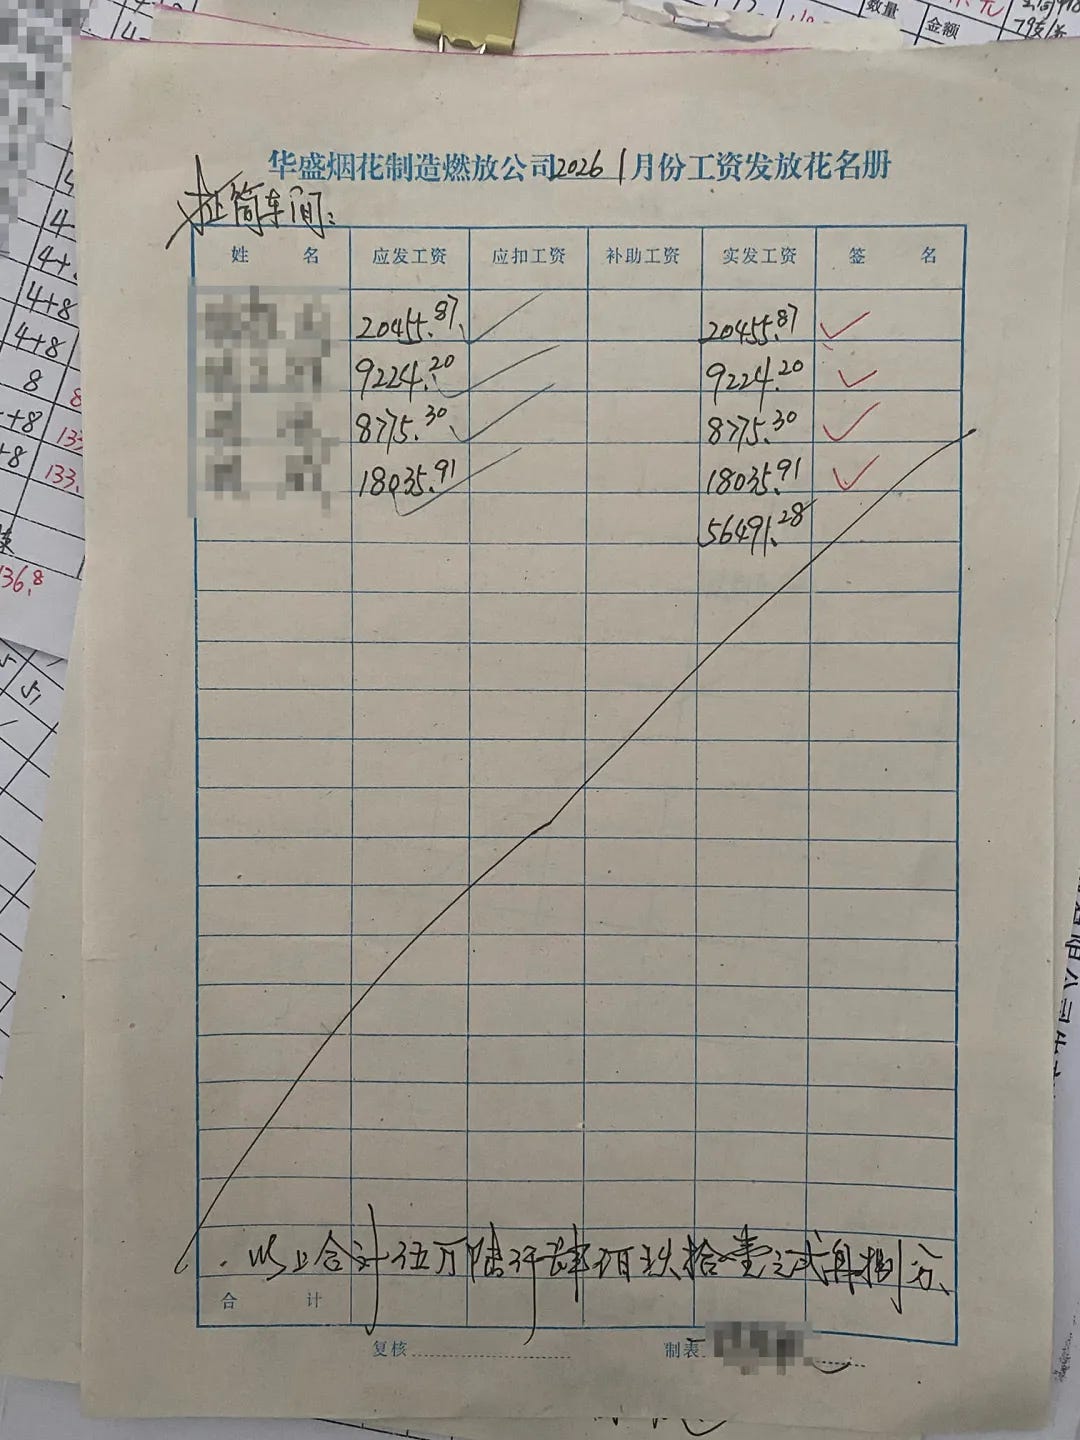 华盛烟花制造燃放公司2026 1月份工资发放花名册
筒车间:
姓 名 应发工资 应扣工资 补助工资 实发工资 签 名
20455.87 20455.87
9224.20 9224.20
8775.30 8775.30
18035.91 18035.91
56491.28
以上合计伍万陆仟肆佰玖拾壹元贰角捌分
合 计
复核 制表
数量
金额
4+8
4+8
8
133.
136.8